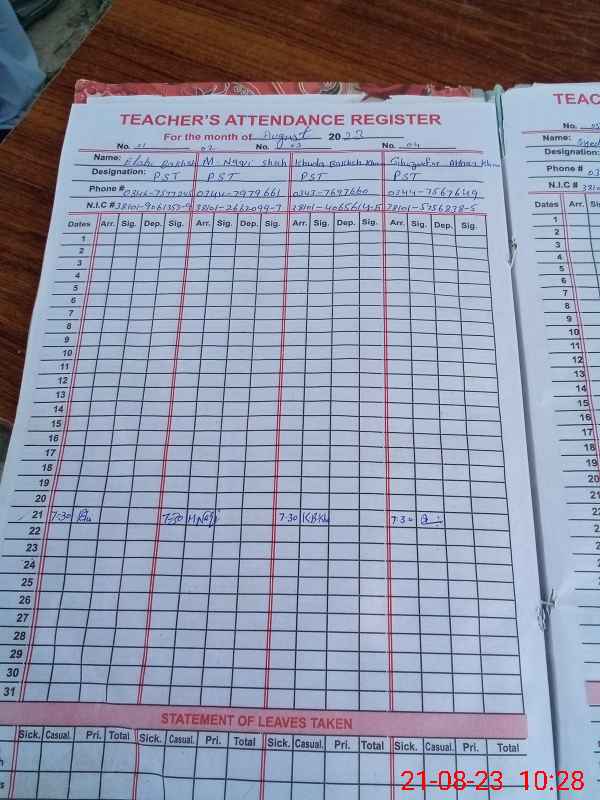 TEACHER'S ATTENDANCE REGISTER
For the month of August 2023
No. 01 02 No. 03 No. 04
Name: Elahi Bakhsh M Naqvi Shah Khuda Bakhsh Khan Abbas Khan
Designation: PST PST PST PST
Phone # 0344-7979661 0343-7697660 0344-7567649
N.I.C # 38101-9061353-9 38101-2662099-7 38101-4065614-5 38101-5756838-5
Dates Arr. Sig. Dep. Sig. Arr. Sig. Dep. Sig. Arr. Sig. Dep. Sig. Arr. Sig. Dep. Sig.
1
2
3
4
5
6
7
8
9
10
11
12
13
14
15
16
17
18
19
20
21 7:30 7:30 M Naqvi 7:30 K.B.Kh 7:30
22
23
24
25
26
27
28
29
30
31
STATEMENT OF LEAVES TAKEN
Sick. Casual. Pri. Total Sick. Casual. Pri. Total Sick. Casual. Pri. Total Sick. Casual. Pri. Total
TEAC
No. 05
Name:
Designation:
Phone # 03
N.I.C # 3810
Dates Arr. S
1
2
3
4
5
6
7
8
9
10
11
12
13
14
15
16
17
18
19
20
21
22
23
24
25
26
27
28
29
30
31
21-08-23 10:28